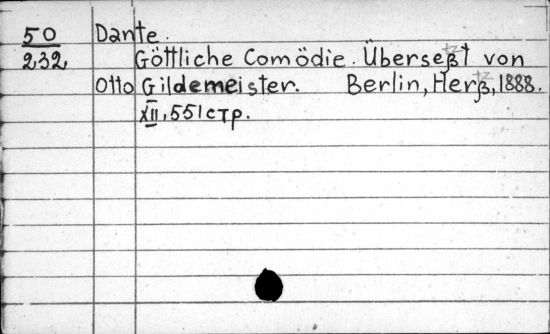 50 Dante.
232 Göttliche Comödie. Überseßt von
tz
Otto Gildemeister. Berlin, Herß, 1888.
tz
XII, 551 стр.